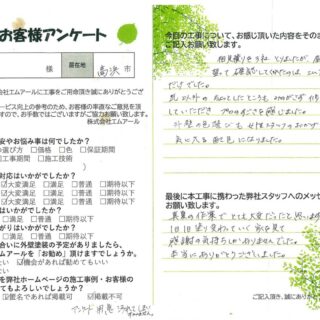 お客様アンケート
様
居在地
高浜 市
会社エムアールに工事をご用命頂き誠にありがとうござ
ービス向上の参考のため、お客様の率直なご意見を頂
すので、お手数ではございますがご協力お願い致します。
株式会社エムアール
安やお悩み事は何でしたか？
の選び方 □価格 □色 □保証期間
□工事期間 □施工技術
対応はいかがでしたか？
☑大変満足 □満足 □普通 □期待以下
☑大変満足 □満足 □普通 □期待以下
はいかがでしたか？
☑大変満足 □満足 □普通 □期待以下
合いに外壁塗装の予定がありましたら、
エムアールを「お勧め」頂けますでしょうか。
い ☑機会があれば勧めてもいい
ない
を弊社ホームページの施工事例・お客様の
てもよろしいでしょうか？
□匿名であれば掲載可 ☑掲載不可
今回の工事について、お感じ頂いた内容をそのま
ご記入お願い致します。
相見積りを3社 とりましたが、
していただき プロのすごさを感じました。
気に入る 配色になりました。
最後に本工事に携わった弊社スタッフへのメッセ
お願い致します。
真夏の作業で とっても大変だったと思います
1日1日塗り変わっていく家を見て
感謝の気持ちしかありませんでした。
本当にありがとうございました。
ご記入頂き、誠にありが